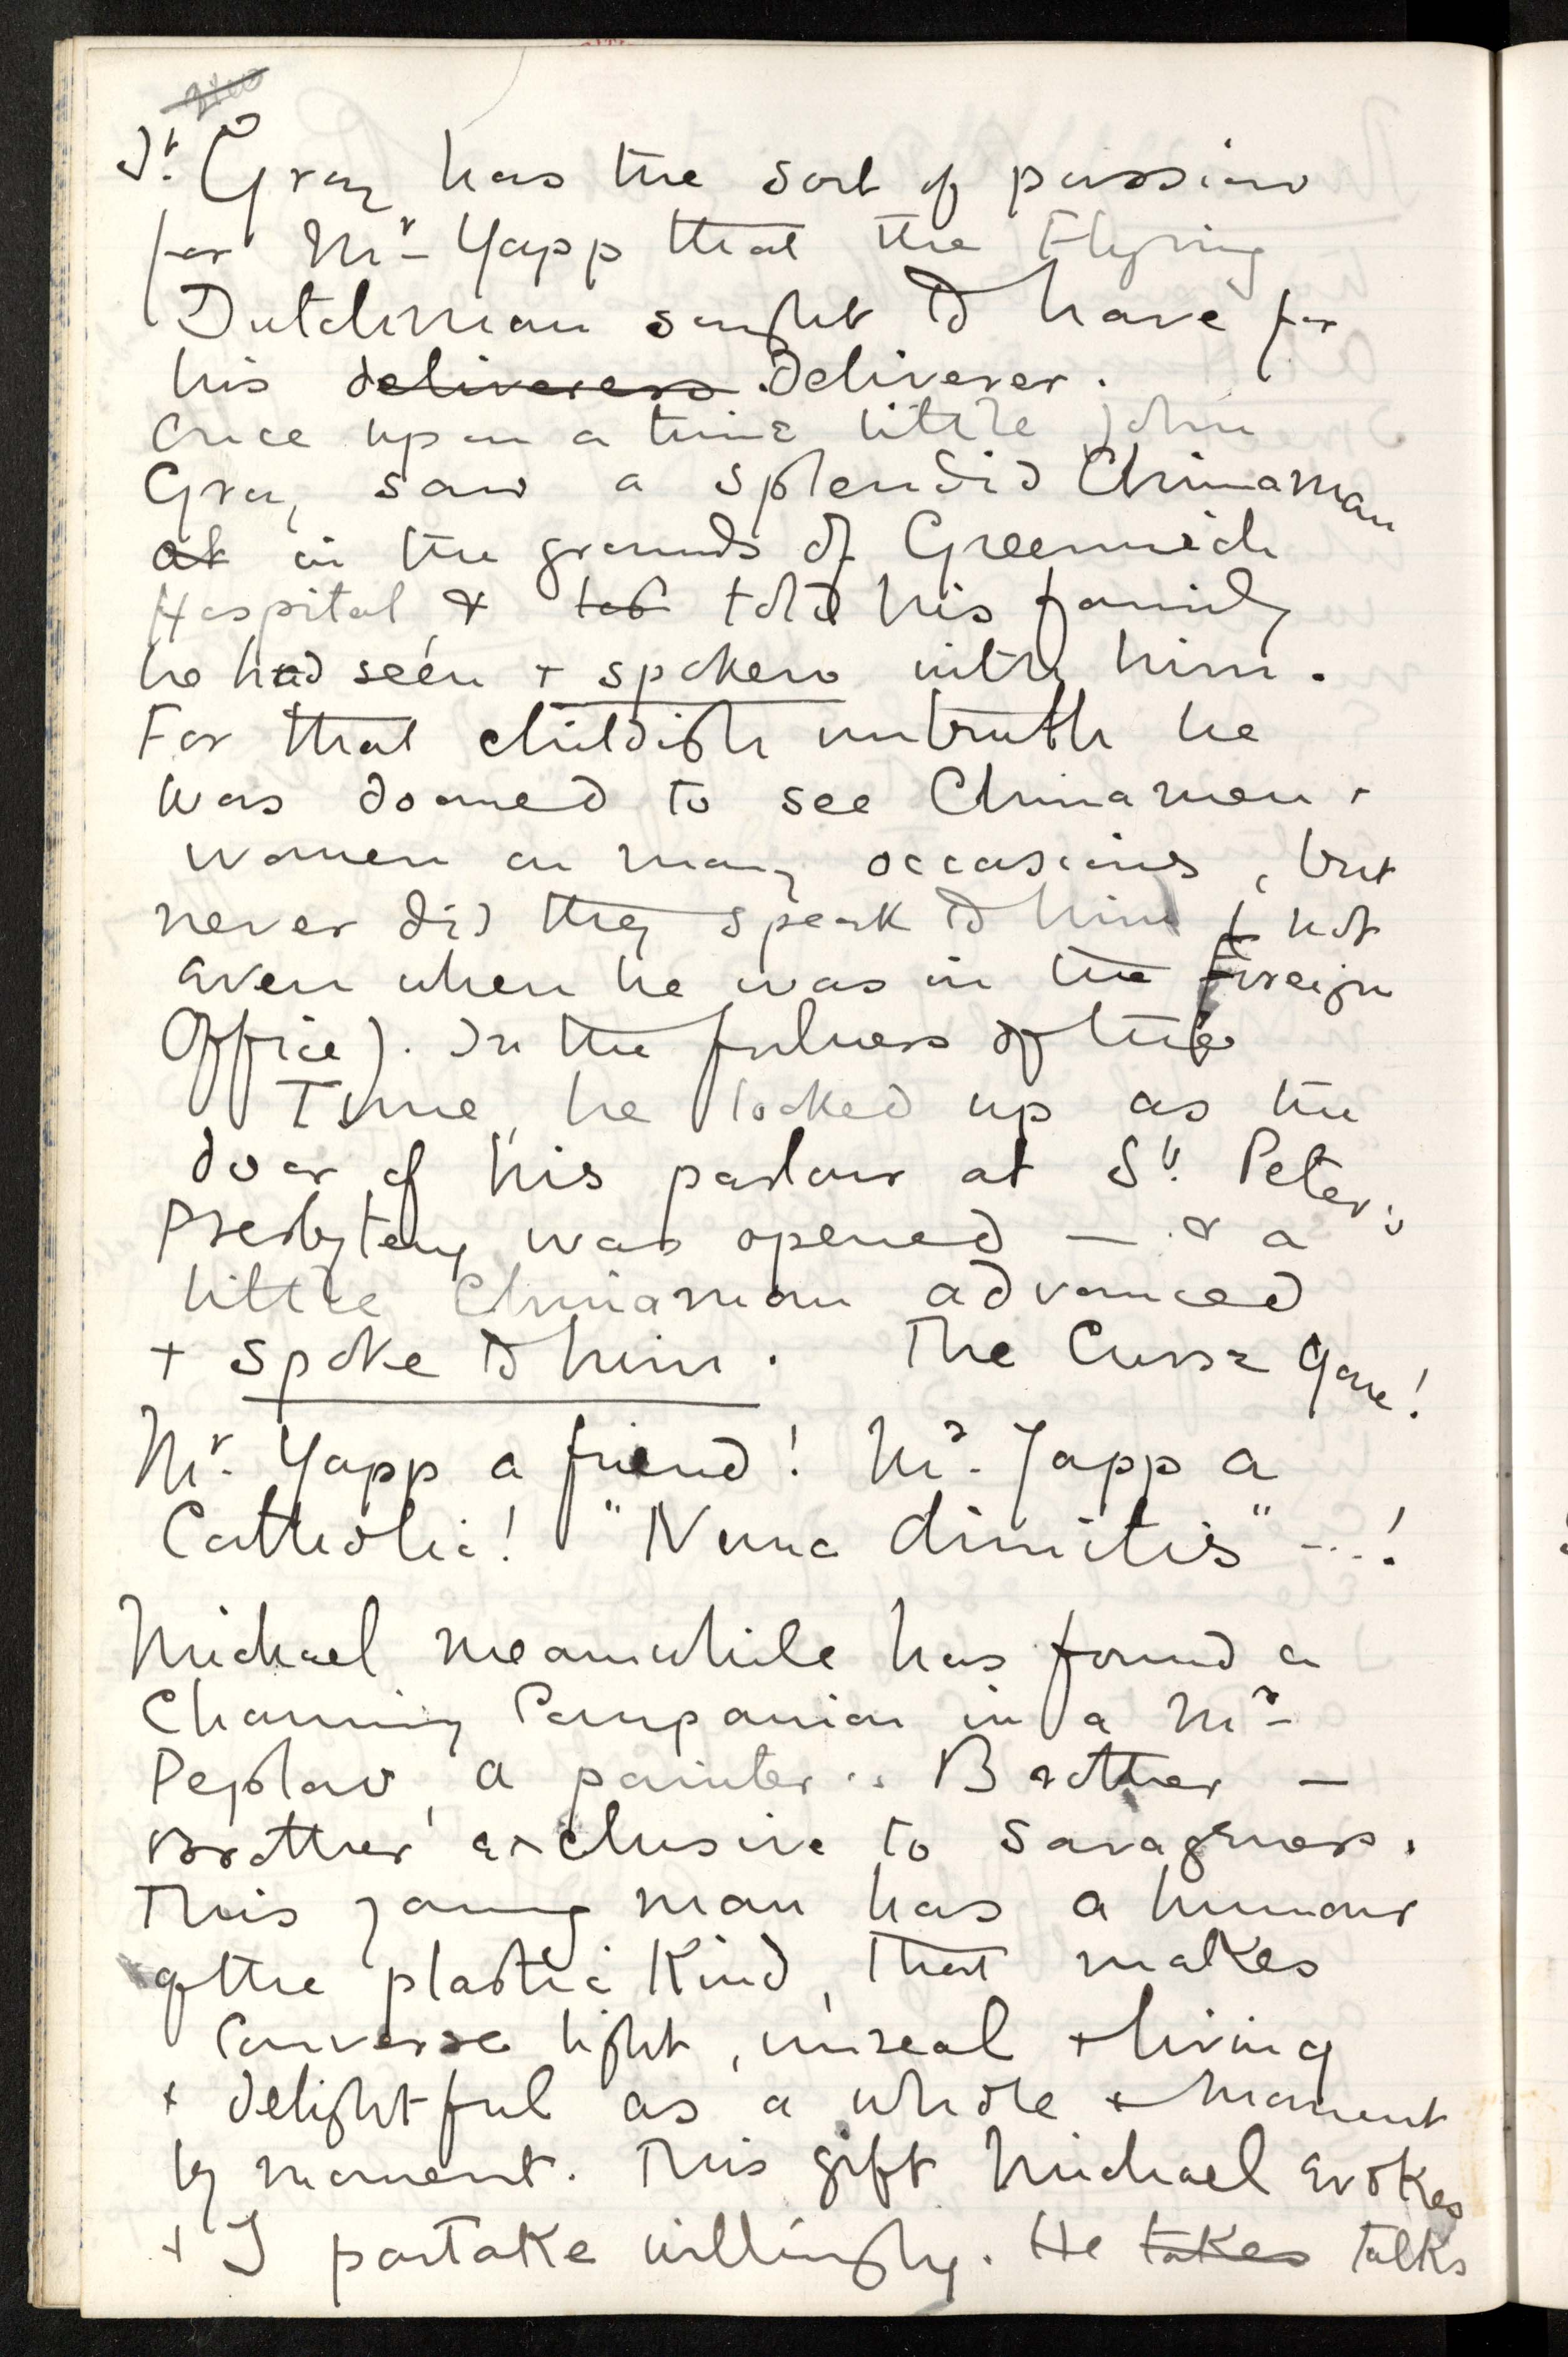 Fr. Gray has the sort of passion
for Mr. Yapp that the Flying
Dutchman sought to have for
his deliveress Deliverer.
Once upon a time little John
Gray saw a splendid Chinaman
at in the grounds of Greenwich
Hospital, & tol told his family
he had seen & spoken with him.
For that childish untruth he
was doomed to see Chinamen &
women on many occasions, but
never did they speak to him ( not
even when he was in the Foreign
Office). In the fulness of
Time, he looked up as the
door of his parlour at St. Peter's
Presbytery was opened — & a
little Chinaman advanced
& spoke to him. The Curse gone!
Mr. Yapp a friend! Mr. Yapp a
Catholic! "Nunc dimitis" ...!
Michael meanwhile has found a
Charming Companion in a Mr.
Peplow, a painter: Brother —
brother exclusive to savageness.
This young man has a humour
of the plastic kind, that makes
converse light, unreal & living
& delightful as a whole & moment
by moment. This gift Michael evokes
& I partake willingly. He takes talks